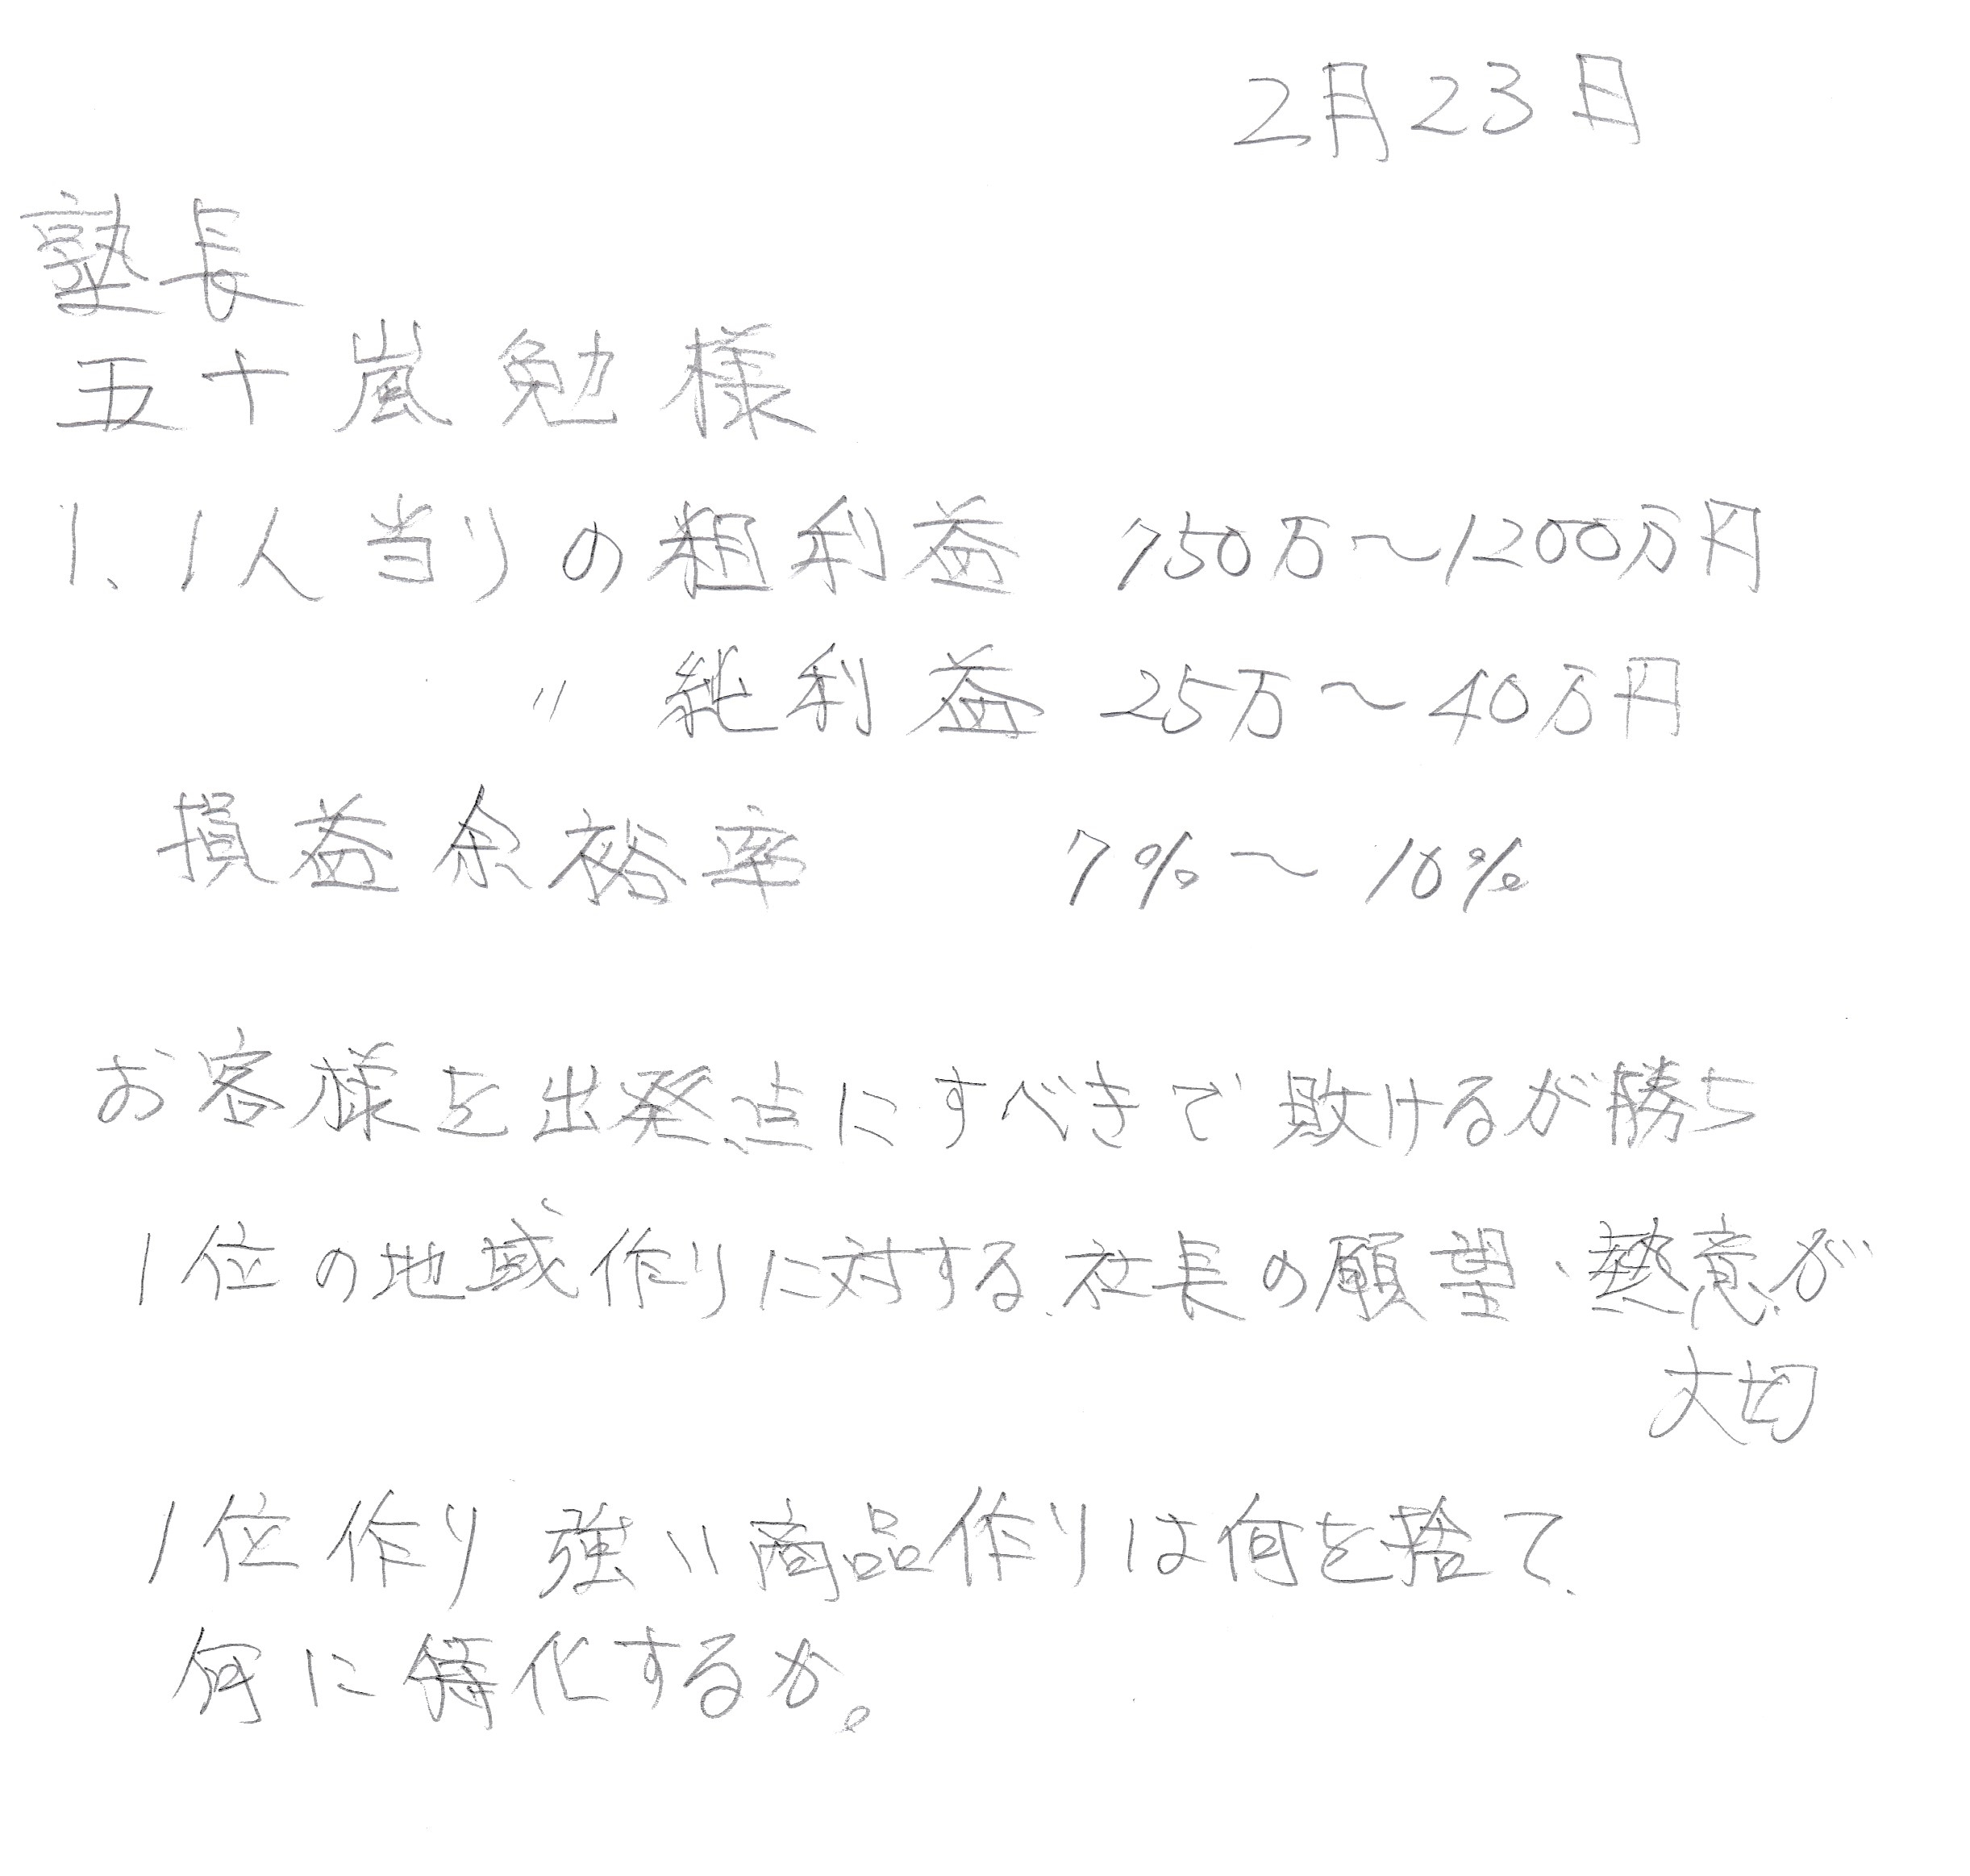 2月23日
塾長
五十嵐勉様
1、1人当りの粗利益 750万〜1200万円
〃 純利益 25万〜40万円
損益余裕率 7%〜10%
お客様を出発点にすべきで敗けるが勝ち
1位の地域作りに対する、社長の願望、熱意が
大切
1位作り 強い商品作りは何を捨て、
何に特化するか。